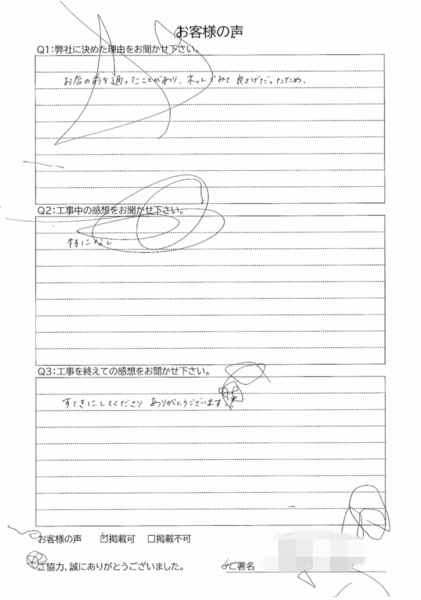 お客様の声
Q1:弊社に決めた理由をお聞かせ下さい。
お店の前を通ったことがあり、ネットでみて良さげだったため。
Q2:工事中の感想をお聞かせ下さい。
特になし
Q3:工事を終えての感想をお聞かせ下さい。
すてきにしてくださり ありがとうございます
お客様の声 ☑掲載可 □掲載不可
ご協力、誠にありがとうございました。 ご署名